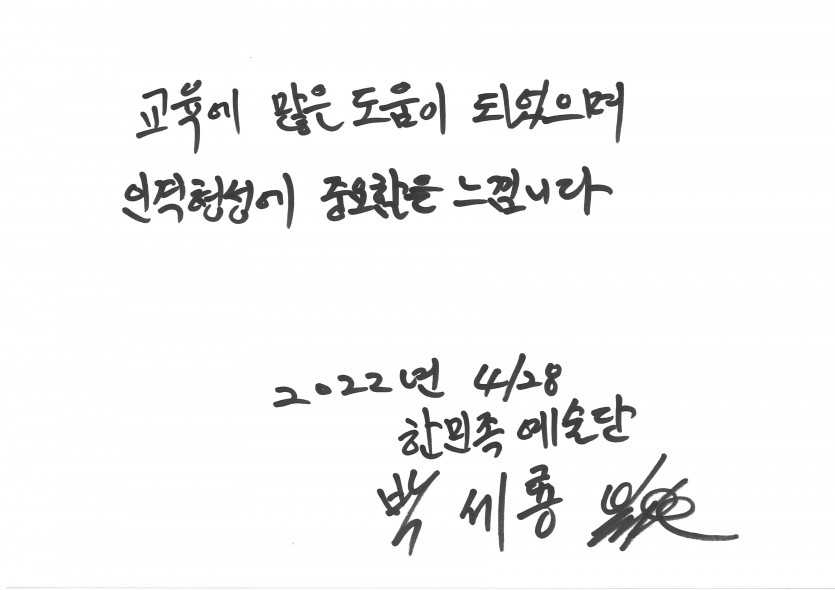 교육에 많은 도움이 되었으며
인격형성에 중요함을 느낍니다
2022년 4/28
한민족 예술단
박 세룡